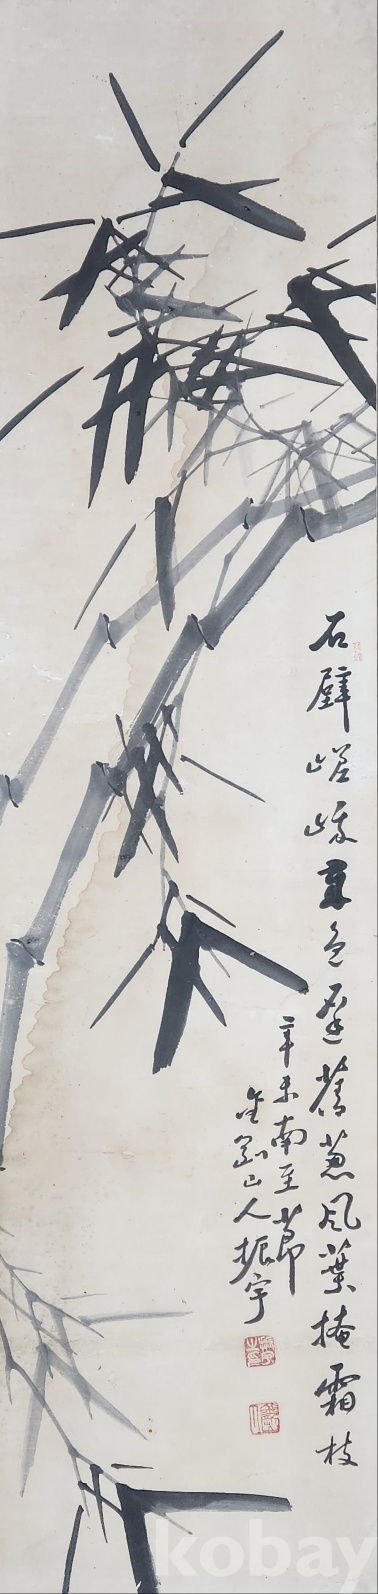 石壁嵯峨草色遙蒼蔥風葉掩霜枝
辛未南至節
金剛山人振宇
kobay